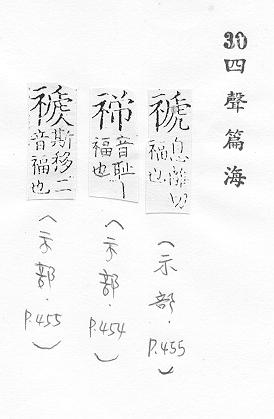 30 四聲篇海
息離切
福也
(示部.P.455)
音恥
福也
(示部.P.454)
斯移二
音福也
(示部.P.455)